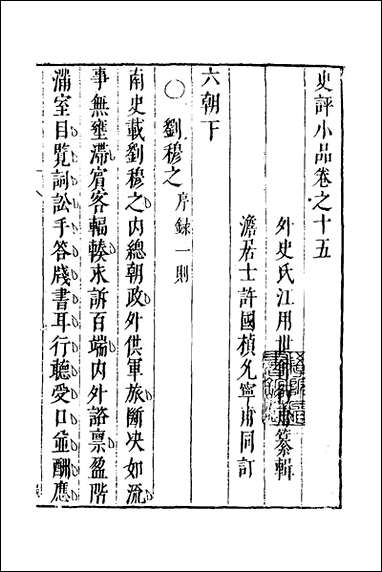 史評小品卷之十五
外史氏江用世甫纂輯
澹居士許國楨允寧甫同訂
六朝下
○劉穆之序録一則
南史載劉穆之内總朝政外供軍旅斷决如流
事無壅滯賓客輻輳求訴百端内外諮禀盈階
滿室目覽詞訟手答牋書耳行聽受口並酬應